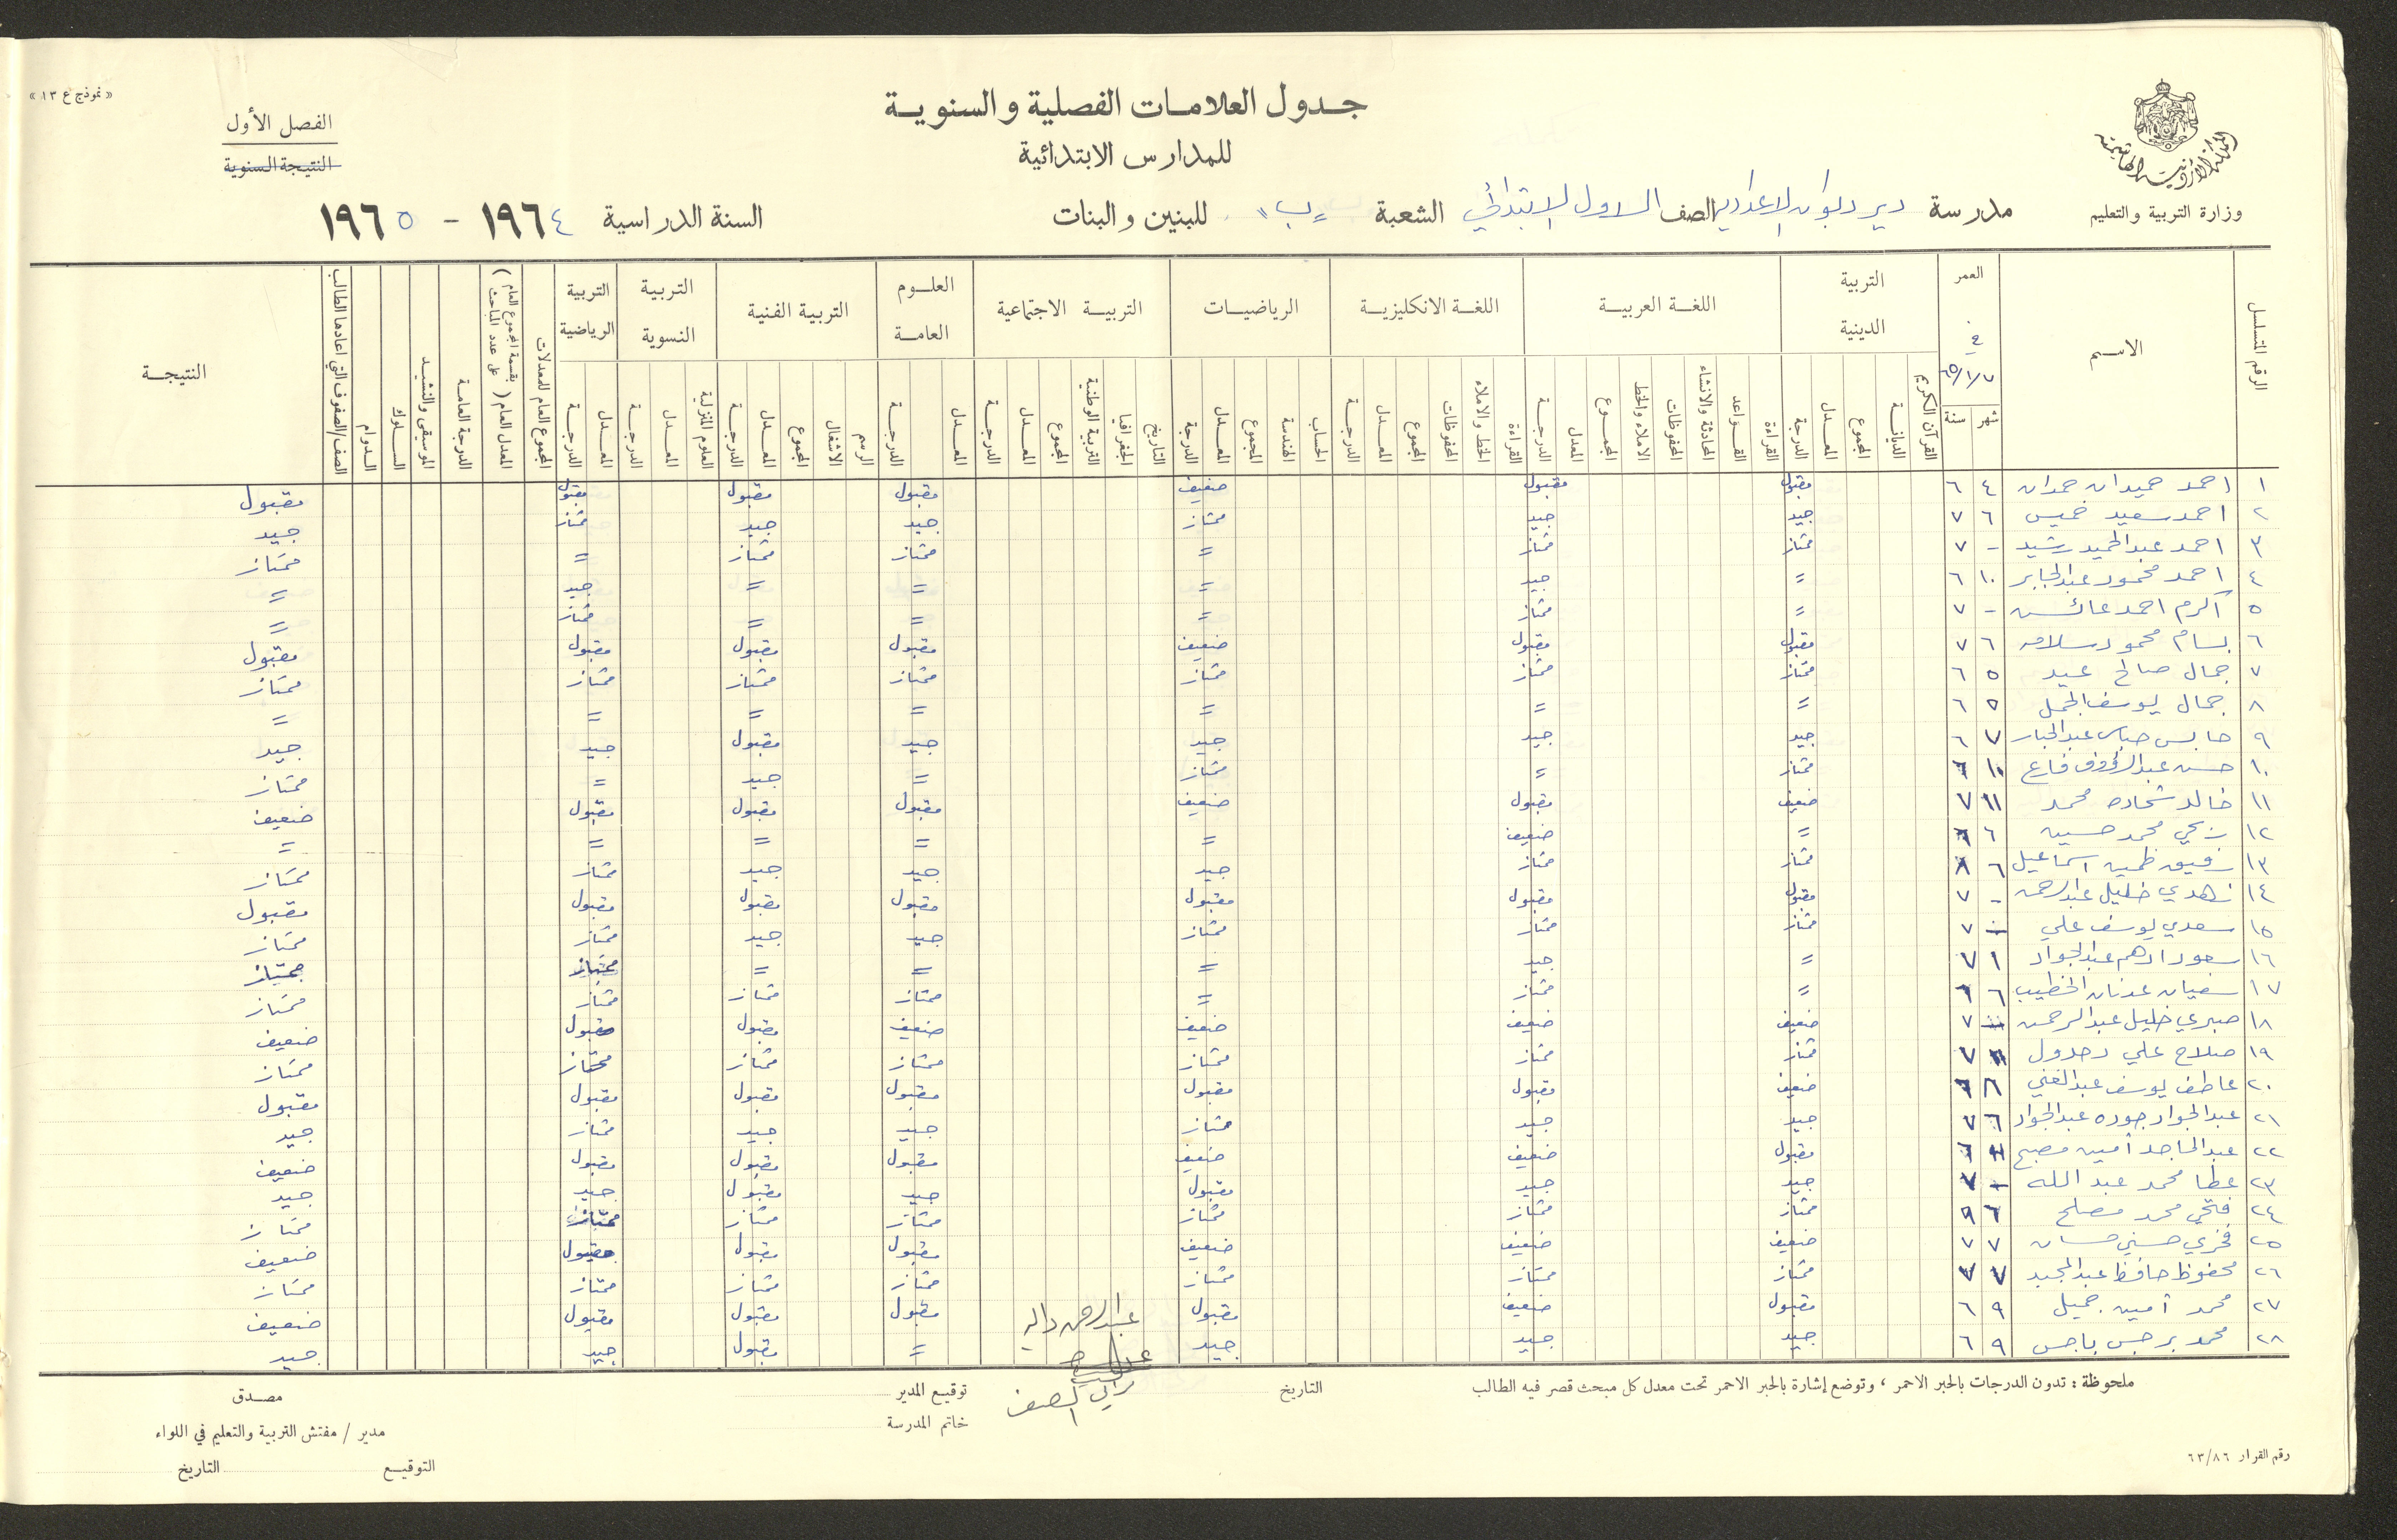 « نموذج ع ١٣ »
جـدول العلامـات الفصلية والسنويـة
للمدارس الابتدائية
الفصل الأول
النتيجة السنوية
المملكة الأردنية الهاشمية
وزارة التربية والتعليم
مدرسة دير دبوان الاعدادية الصف الاول الابتدائي الشعبة «ب» للبنين والبنات السنة الدراسية ١٩٦٤ - ١٩٦٥
الرقم المتسلسل الاسـم العمر في ٦٥/١/٧ شهر سنة
التربية الدينية القرآن الكريم الديانـة المجموع المعـدل الدرجة
اللغـة العربيـة القراءة القـواعد المحادثة والانشاء المحفوظات الاملاء والخط المجمـوع المعدل الدرجـة
اللغـة الانكليزيـة القراءة الخط والاملاء المحفوظات المجموع المعـدل الدرجـة
الرياضيـات الحساب الهندسة المجموع المعـدل الدرجة
التربيـة الاجتماعية التاريخ الجغرافيا التربية الوطنية المجموع المعـدل الدرجة
العلـوم العامـة المعـدل الدرجـة
التربيـة الفنية الرسم الاشغال المجموع المعـدل الدرجـة
التربية النسوية العلوم المنزلية المعـدل الدرجـة
التربية الرياضية المعـدل الدرجـة
المجموع العام للمعدلات
المعدل العام ( بقسمة المجموع العام على عدد المباحث )
الدرجة العامـة
الموسيقى والنشيـد
السـلوك
الـدوام
الصف/الصفوف التي اعادها الطالب
النتيجـة
١ احمد حميدان حمدان ٤ ٦ مقبول مقبول ضعيف مقبول مقبول مقبول مقبول
٢ احمد سعيد خميس ٦ ٧ جيد جيد ممتاز جيد جيد ممتاز جيد
٣ احمد عبد الحميد رشيد - ٧ ممتاز ممتاز = ممتاز ممتاز = ممتاز
٤ احمد محمود عبد الجابر ١٠ ٦ = جيد = = = جيد =
٥ اكرم احمد عائش - ٧ = ممتاز = = = ممتاز =
٦ بسام محمود سلامه ٦ ٧ مقبول مقبول ضعيف مقبول مقبول مقبول مقبول
٧ جمال صالح عيد ٥ ٦ ممتاز ممتاز ممتاز ممتاز ممتاز ممتاز ممتاز
٨ جمال يوسف الجمل ٥ ٦ = = = = = = =
٩ حابس عباس عبد الجبار ٧ ٦ جيد جيد جيد جيد مقبول جيد جيد
١٠ حسن عبد الرؤوف فارع ١٠ ٦ ممتاز = ممتاز = جيد = ممتاز
١١ خالد شحاده محمد ١١ ٧ ضعيف مقبول ضعيف مقبول مقبول مقبول ضعيف
١٢ ربحي محمد حسين ٦ ٦ = ضعيف = = = = =
١٣ رفيق ظمين اسماعيل ٦ ٨ ممتاز ممتاز جيد جيد جيد ممتاز ممتاز
١٤ زهدي خليل عبد الرحمن - ٧ مقبول مقبول مقبول مقبول مقبول مقبول مقبول
١٥ سعدي يوسف علي - ٧ ممتاز ممتاز ممتاز جيد جيد ممتاز ممتاز
١٦ سعود ادهم عبد الجواد ١ ٧ = جيد = = = ممتاز ممتاز
١٧ سفيان عدنان الخطيب ٦ ٦ = ممتاز = ممتاز ممتاز ممتاز ممتاز
١٨ صبري خليل عبد الرحمن - ٧ ضعيف ضعيف ضعيف ضعيف مقبول مقبول ضعيف
١٩ صلاح علي دحدول ٧ ممتاز ممتاز ممتاز ممتاز ممتاز ممتاز ممتاز
٢٠ عاطف يوسف عبد الغني ٨ ٦ ضعيف مقبول مقبول مقبول مقبول مقبول مقبول
٢١ عبد الجواد جوده عبد الجواد ٦ ٧ جيد جيد ممتاز جيد جيد ممتاز جيد
٢٢ عبد الماجد أمين مصبح ٦ مقبول ضعيف ضعيف مقبول مقبول مقبول ضعيف
٢٣ عطا محمد عبد الله - ٧ جيد جيد مقبول جيد مقبول جيد جيد
٢٤ فتحي محمد مصلح ٦ ٩ ممتاز ممتاز ممتاز ممتاز ممتاز ممتاز ممتاز
٢٥ فخري حسني حسان ٧ ٧ ضعيف ضعيف ضعيف مقبول مقبول مقبول ضعيف
٢٦ محفوظ حافظ عبد المجيد ٧ ٧ ممتاز ممتاز ممتاز ممتاز ممتاز ممتاز ممتاز
٢٧ محمد أمين جميل ٩ ٦ مقبول ضعيف مقبول مقبول مقبول مقبول ضعيف
٢٨ محمد برجس باجس ٩ ٦ جيد جيد جيد = مقبول جيد جيد
ملحوظة : تدون الدرجات بالحبر الاحمر ، وتوضع إشارة بالحبر الاحمر تحت معدل كل مبحث قصر فيه الطالب
التاريخ
عبد الرحمن
مربي الصف
توقيع المدير
خاتم المدرسة
مصـدق
مدير / مفتش التربية والتعليم في اللواء
التوقيـع التاريخ
رقم القرار ٦٣/٨٦